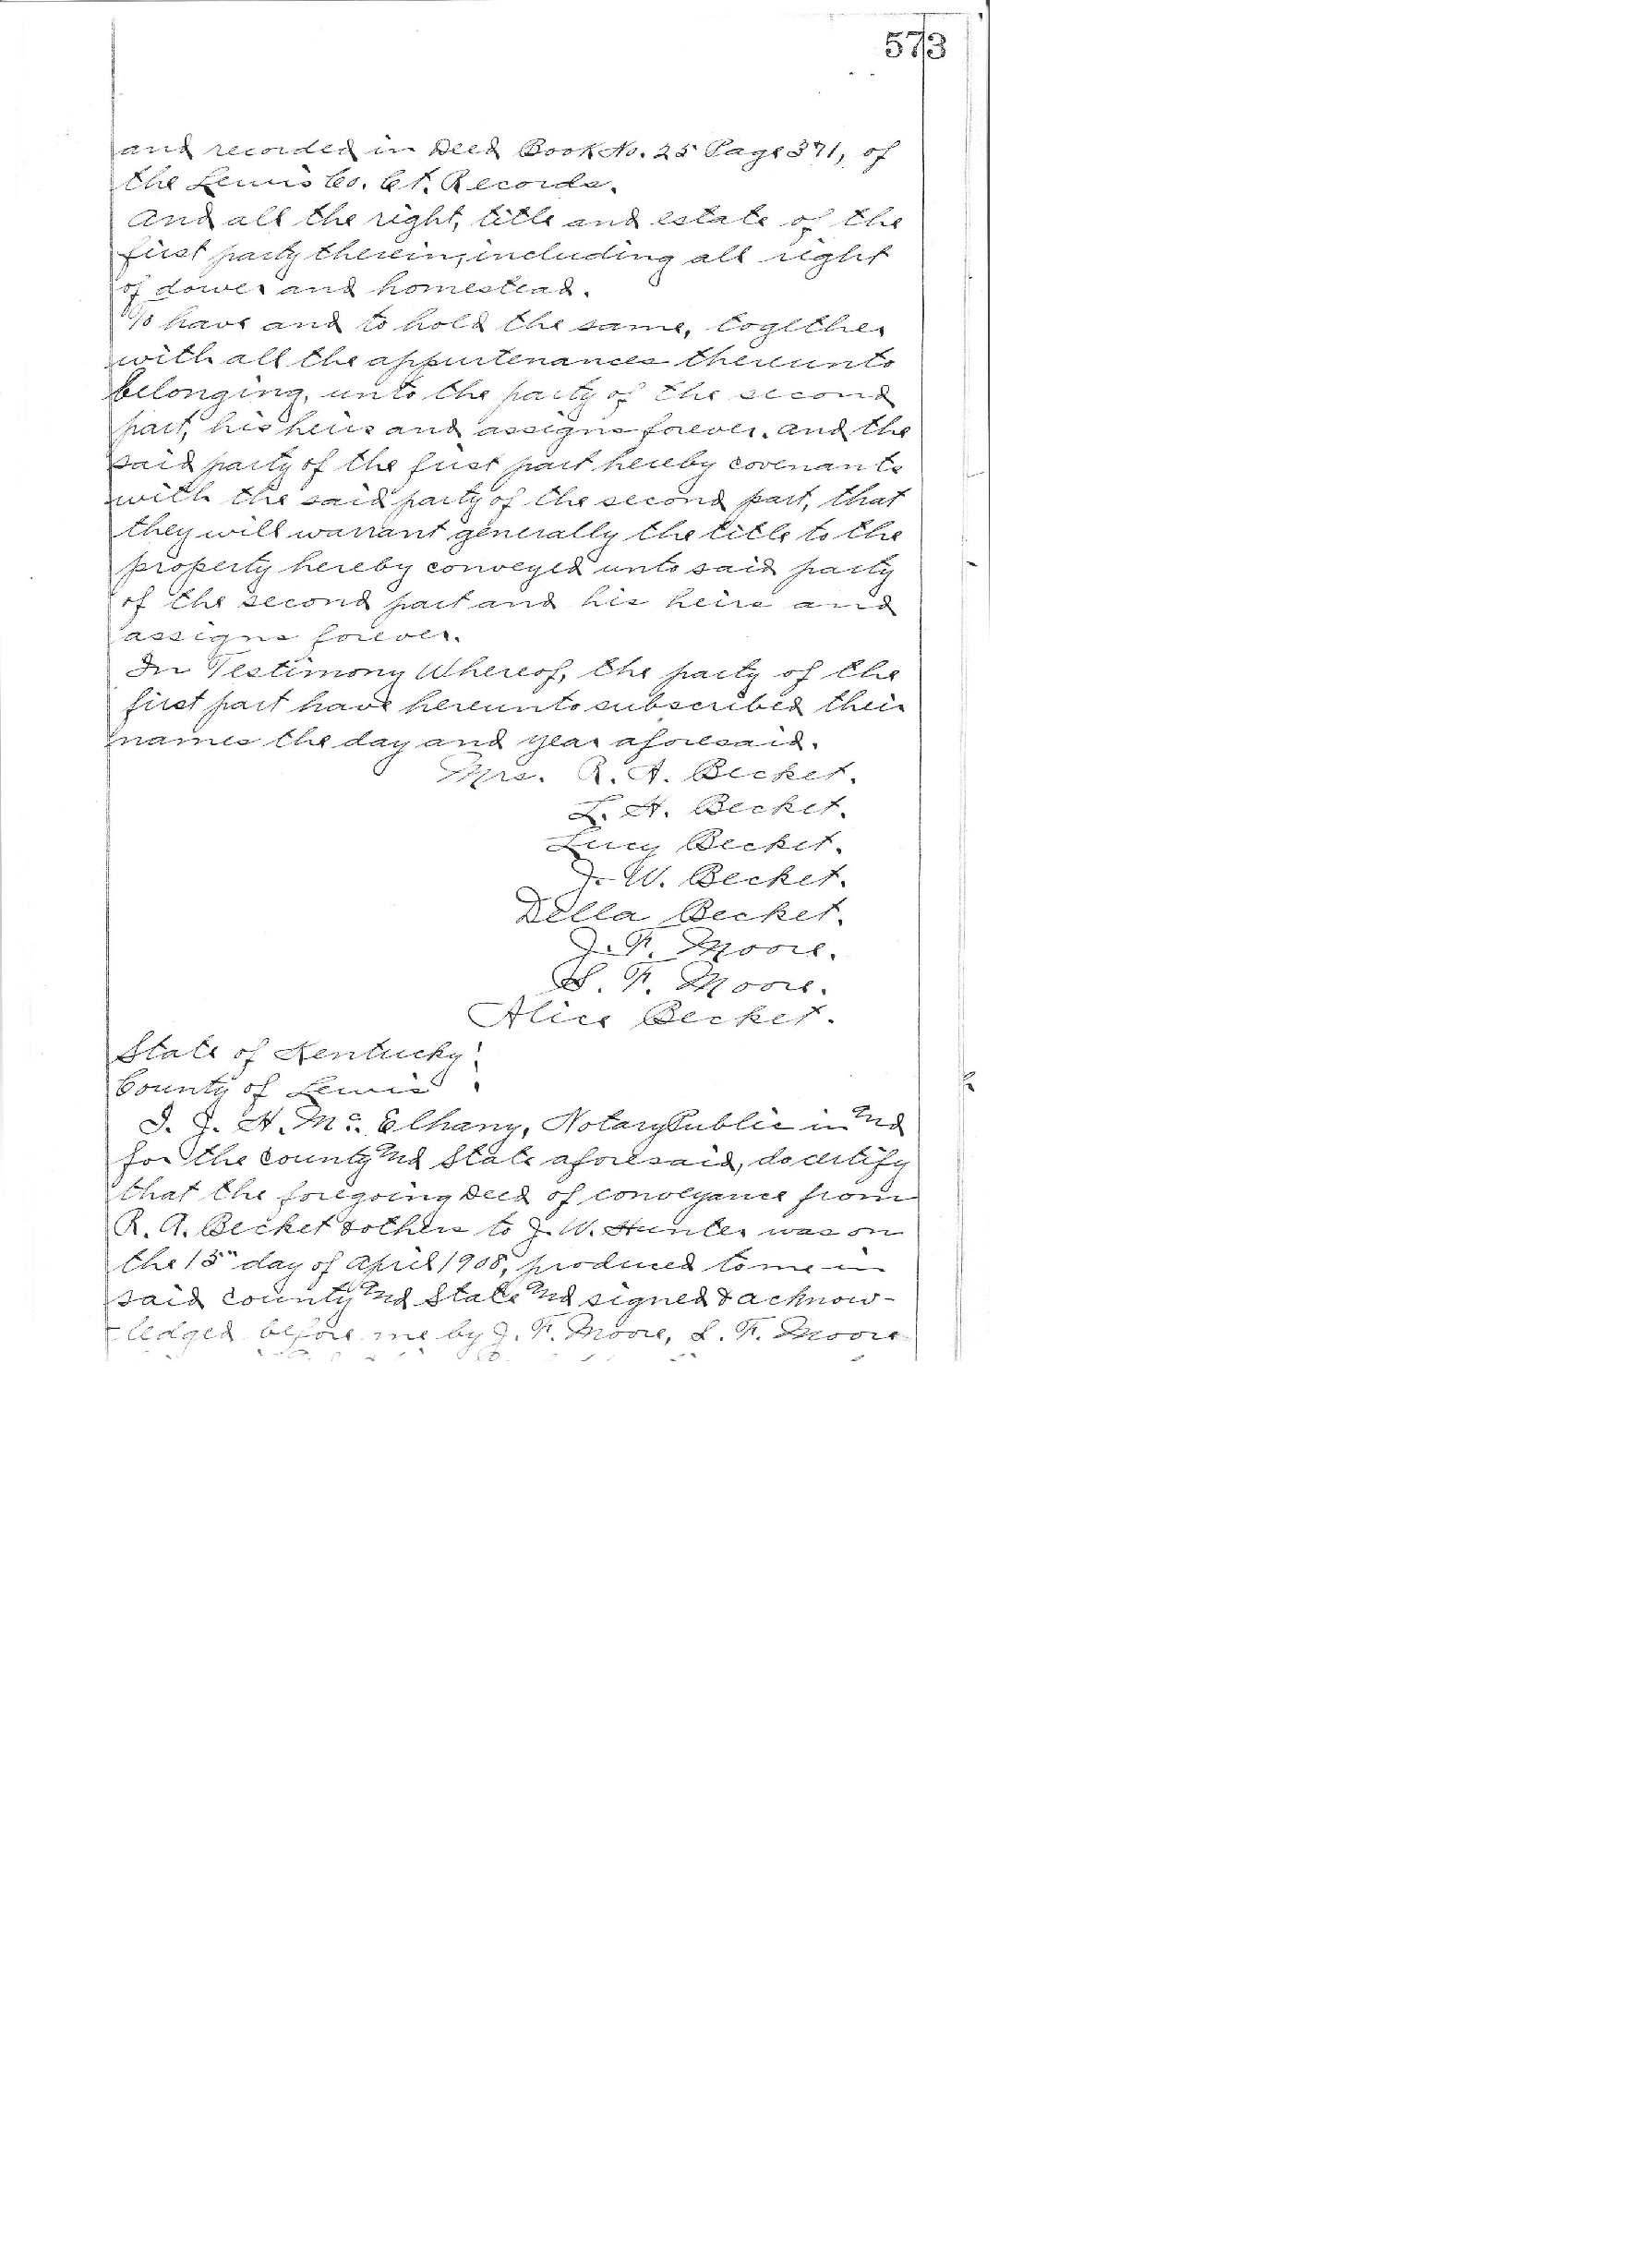 573
and recorded in Deed Book No. 25 Page 371, of
the Lewis Co. Ct. Records.
And all the right, title and estate of the
first party therein, including all right
of dower and homestead.
To have and to hold the same, together
with all the appurtenances thereunto
belonging, unto the party of the second
part, his heirs and assigns forever. And the
said party of the first part hereby covenants
with the said party of the second part, that
they will warrant generally the title to the
property hereby conveyed unto said party
of the second part and his heirs and
assigns forever.
In Testimony Whereof, the party of the
first part have hereunto subscribed their
names the day and year aforesaid.
Mrs. R. A. Becket.
L. A. Becket.
Lucy Becket.
J. W. Becket.
Della Becket.
J. F. Moore.
S. F. Moore.
Alice Becket.
State of Kentucky
County of Lewis
I. J. A. Mc. Elhany, Notary Public in and
for the County and State aforesaid, do certify
that the foregoing Deed of conveyance from
R. A. Becket & others to J. W. Hunter was on
the 15" day of April 1908, produced to me in
said County and State and signed & acknow-
ledged before me by J. F. Moore, S. F. Moore